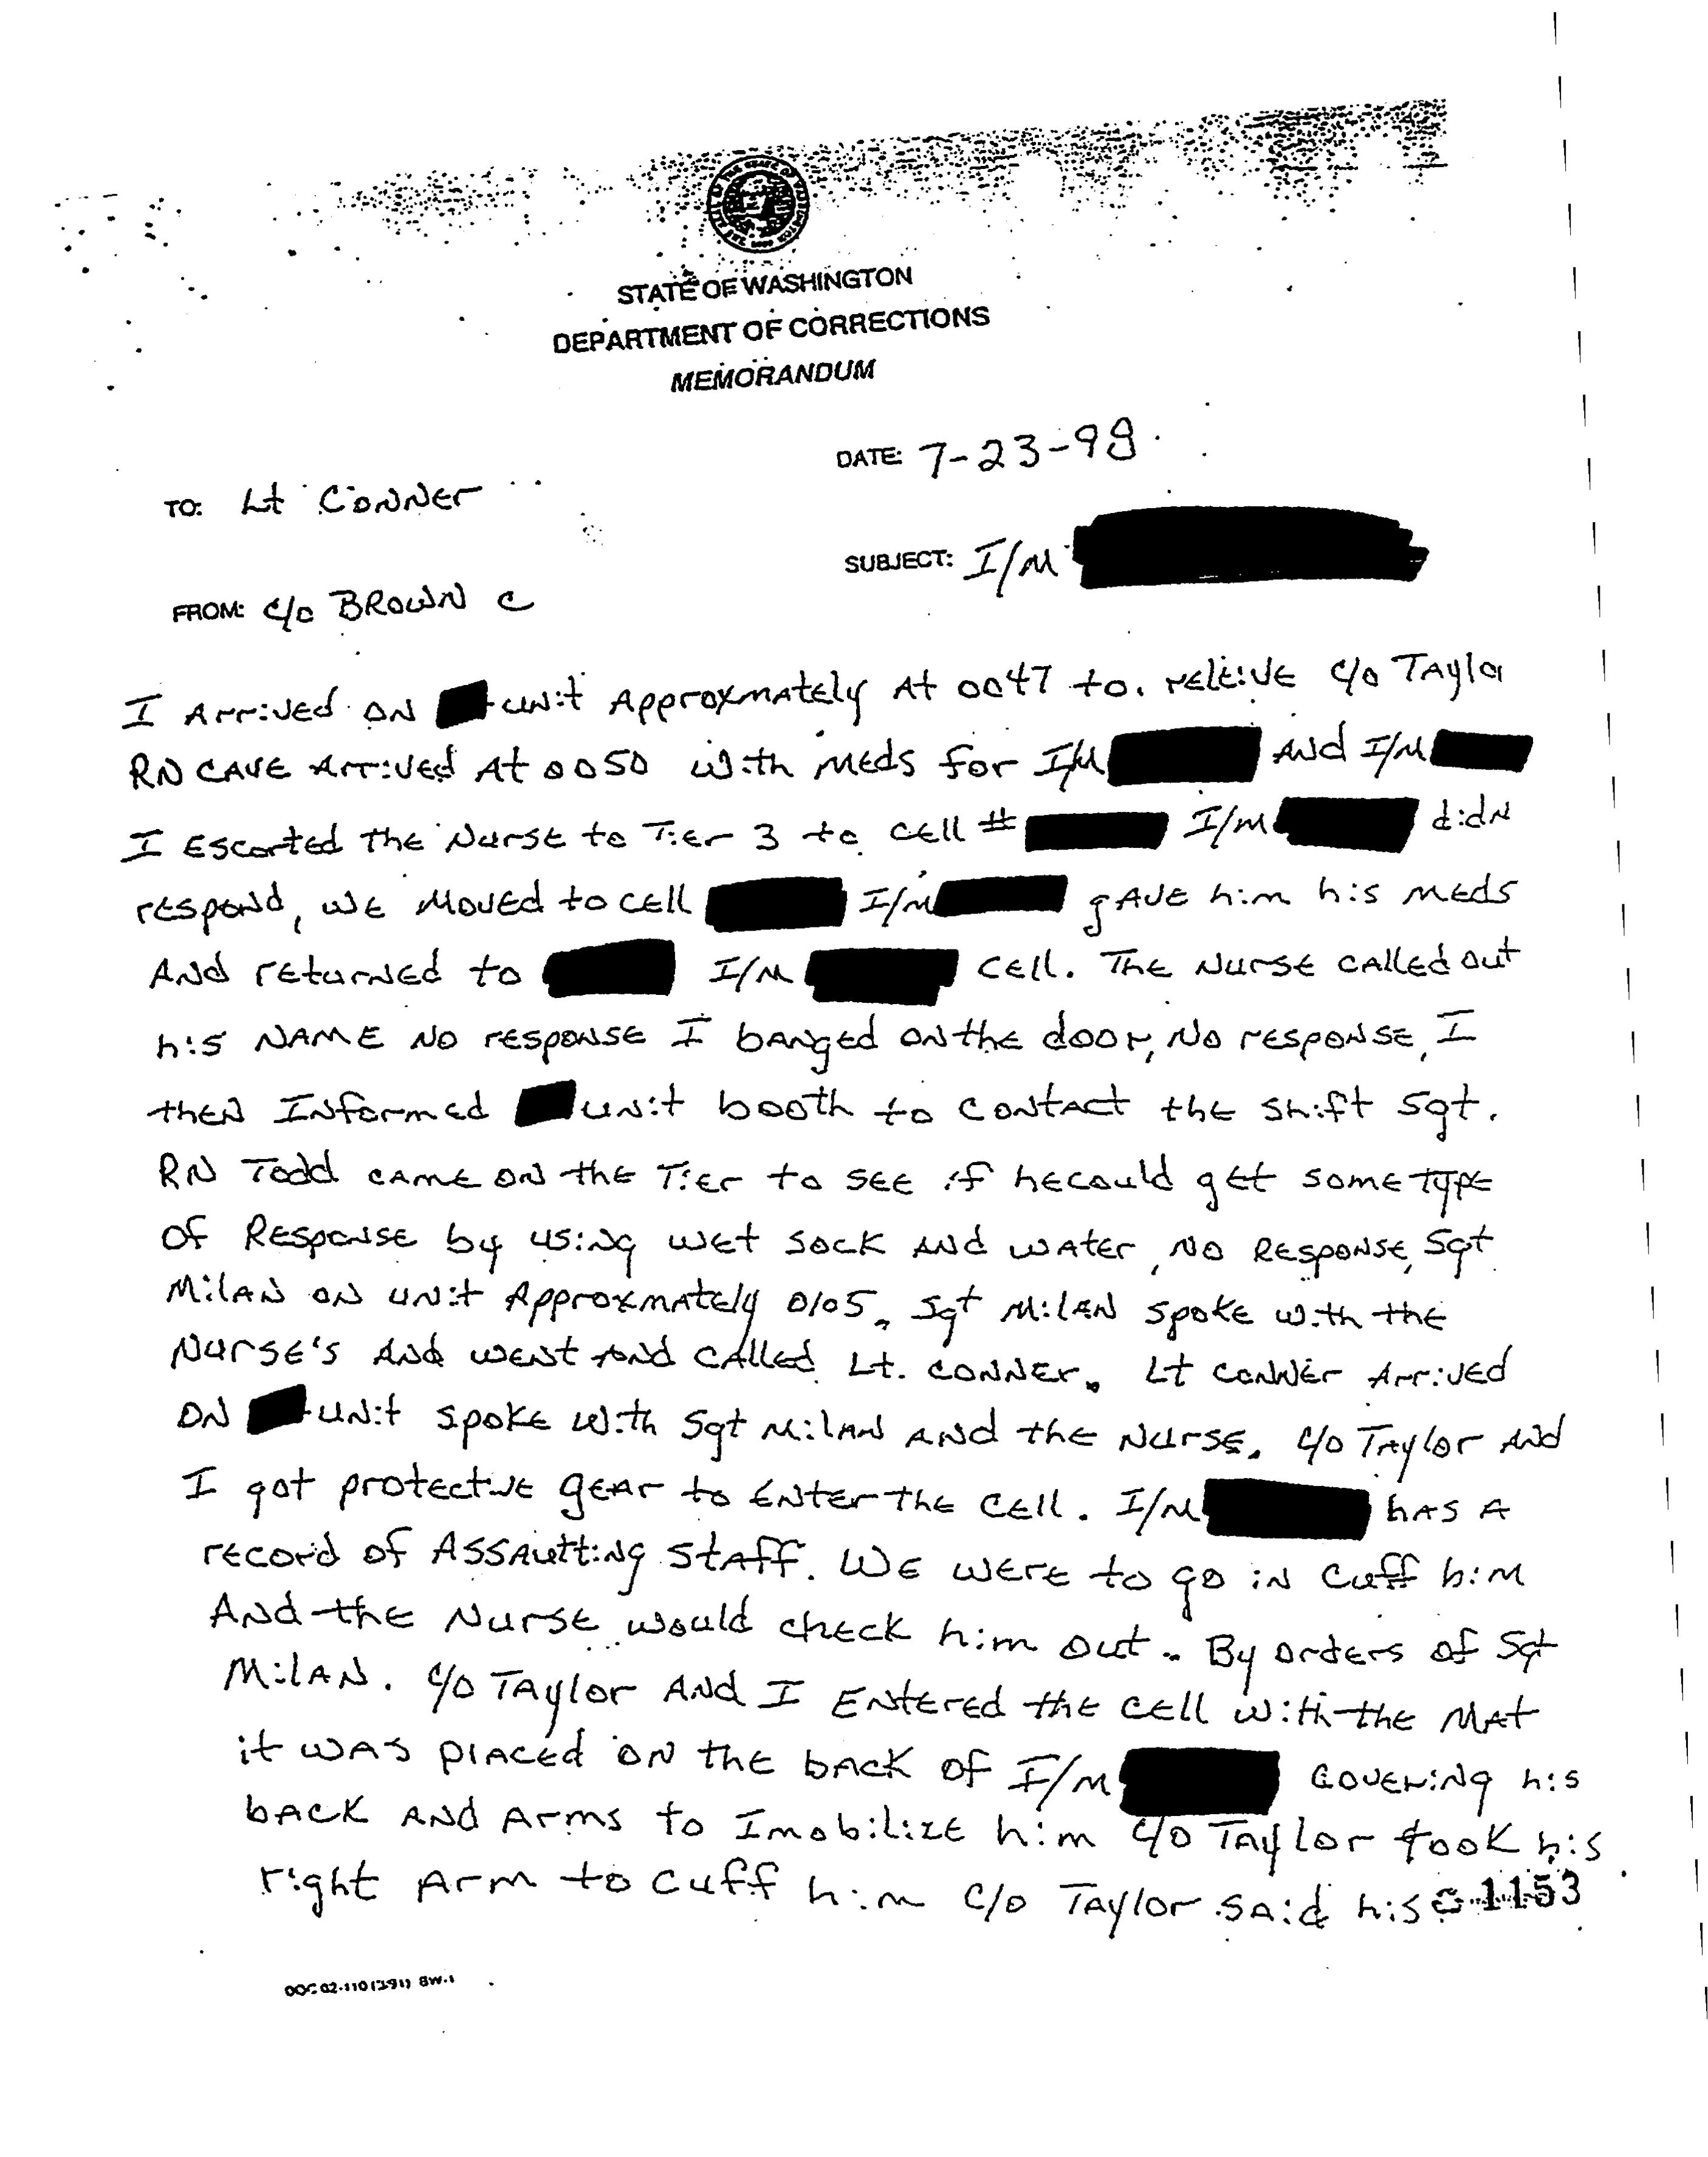 STATE OF WASHINGTON
DEPARTMENT OF CORRECTIONS
MEMORANDUM
DATE: 7-23-98
TO: Lt CONNER
SUBJECT: I/M
FROM: C/O BROWN C
I Arrived ON unit Approxmately At 0047 to. releive C/O Taylor
RN CAVE Arrived At 0050 with MEDS for I/M AND I/M
I Escorted the Nurse to Tier 3 to CELL # I/M didN
respond, WE MOVED to CELL I/M gAVE him his MEDS
AND returned to I/M CELL. The Nurse called out
his NAME NO response I banged ON the door, No response, I
then Informed unit booth to contact the shift Sgt.
RN Todd CAME ON the Tier to SEE if he could get some TYPE
of Response by using WET SOCK AND WATER, NO RESPONSE, Sgt
MilAN ON unit Approxmately 0105. Sgt MilAN spoke with the
Nurse's And went And CAlled Lt. CONNER. Lt CONNER Arrived
ON unit spoke with Sgt MilAN AND the Nurse. C/O TAylor AND
I got protective gear to ENTER the CELL. I/M hAS A
record of ASSAutting STAFF. WE WERE to go in Cuff him
And the Nurse would check him out. By orders of Sgt
MilAN. C/O TAylor AND I ENtered the CELL with the MAT
it WAS placed ON the back of I/M COVERiNg his
bACK AND Arms to Imobilize him C/O TAylor took his
right Arm to Cuff him C/O TAylor SAid his 1153
DOC 02-110 (3/91) BW-1